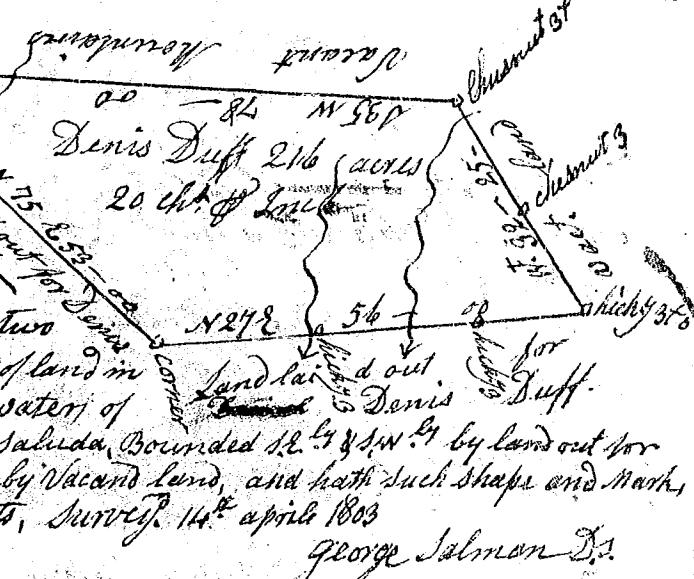 Vacant Mountains
Chesnut 3x
S35W 78 — 00
Denis Duff 216 acres
20 chs. Pr Inch
chesnut 3
Vact. land
N 75 E 53 — 00
out for Denis
N27E 56 — 00
hicky 3x
corner
hicky 3
hicky 3
Land laid out for
Denis Duff.
two
of land in
waters of
Saluda, Bounded SE ly & SW ly by land out for
by Vacand land, and hath such shape and Mark,
ts, Survey'd. 14th aprile 1803
George Salmon D.S.